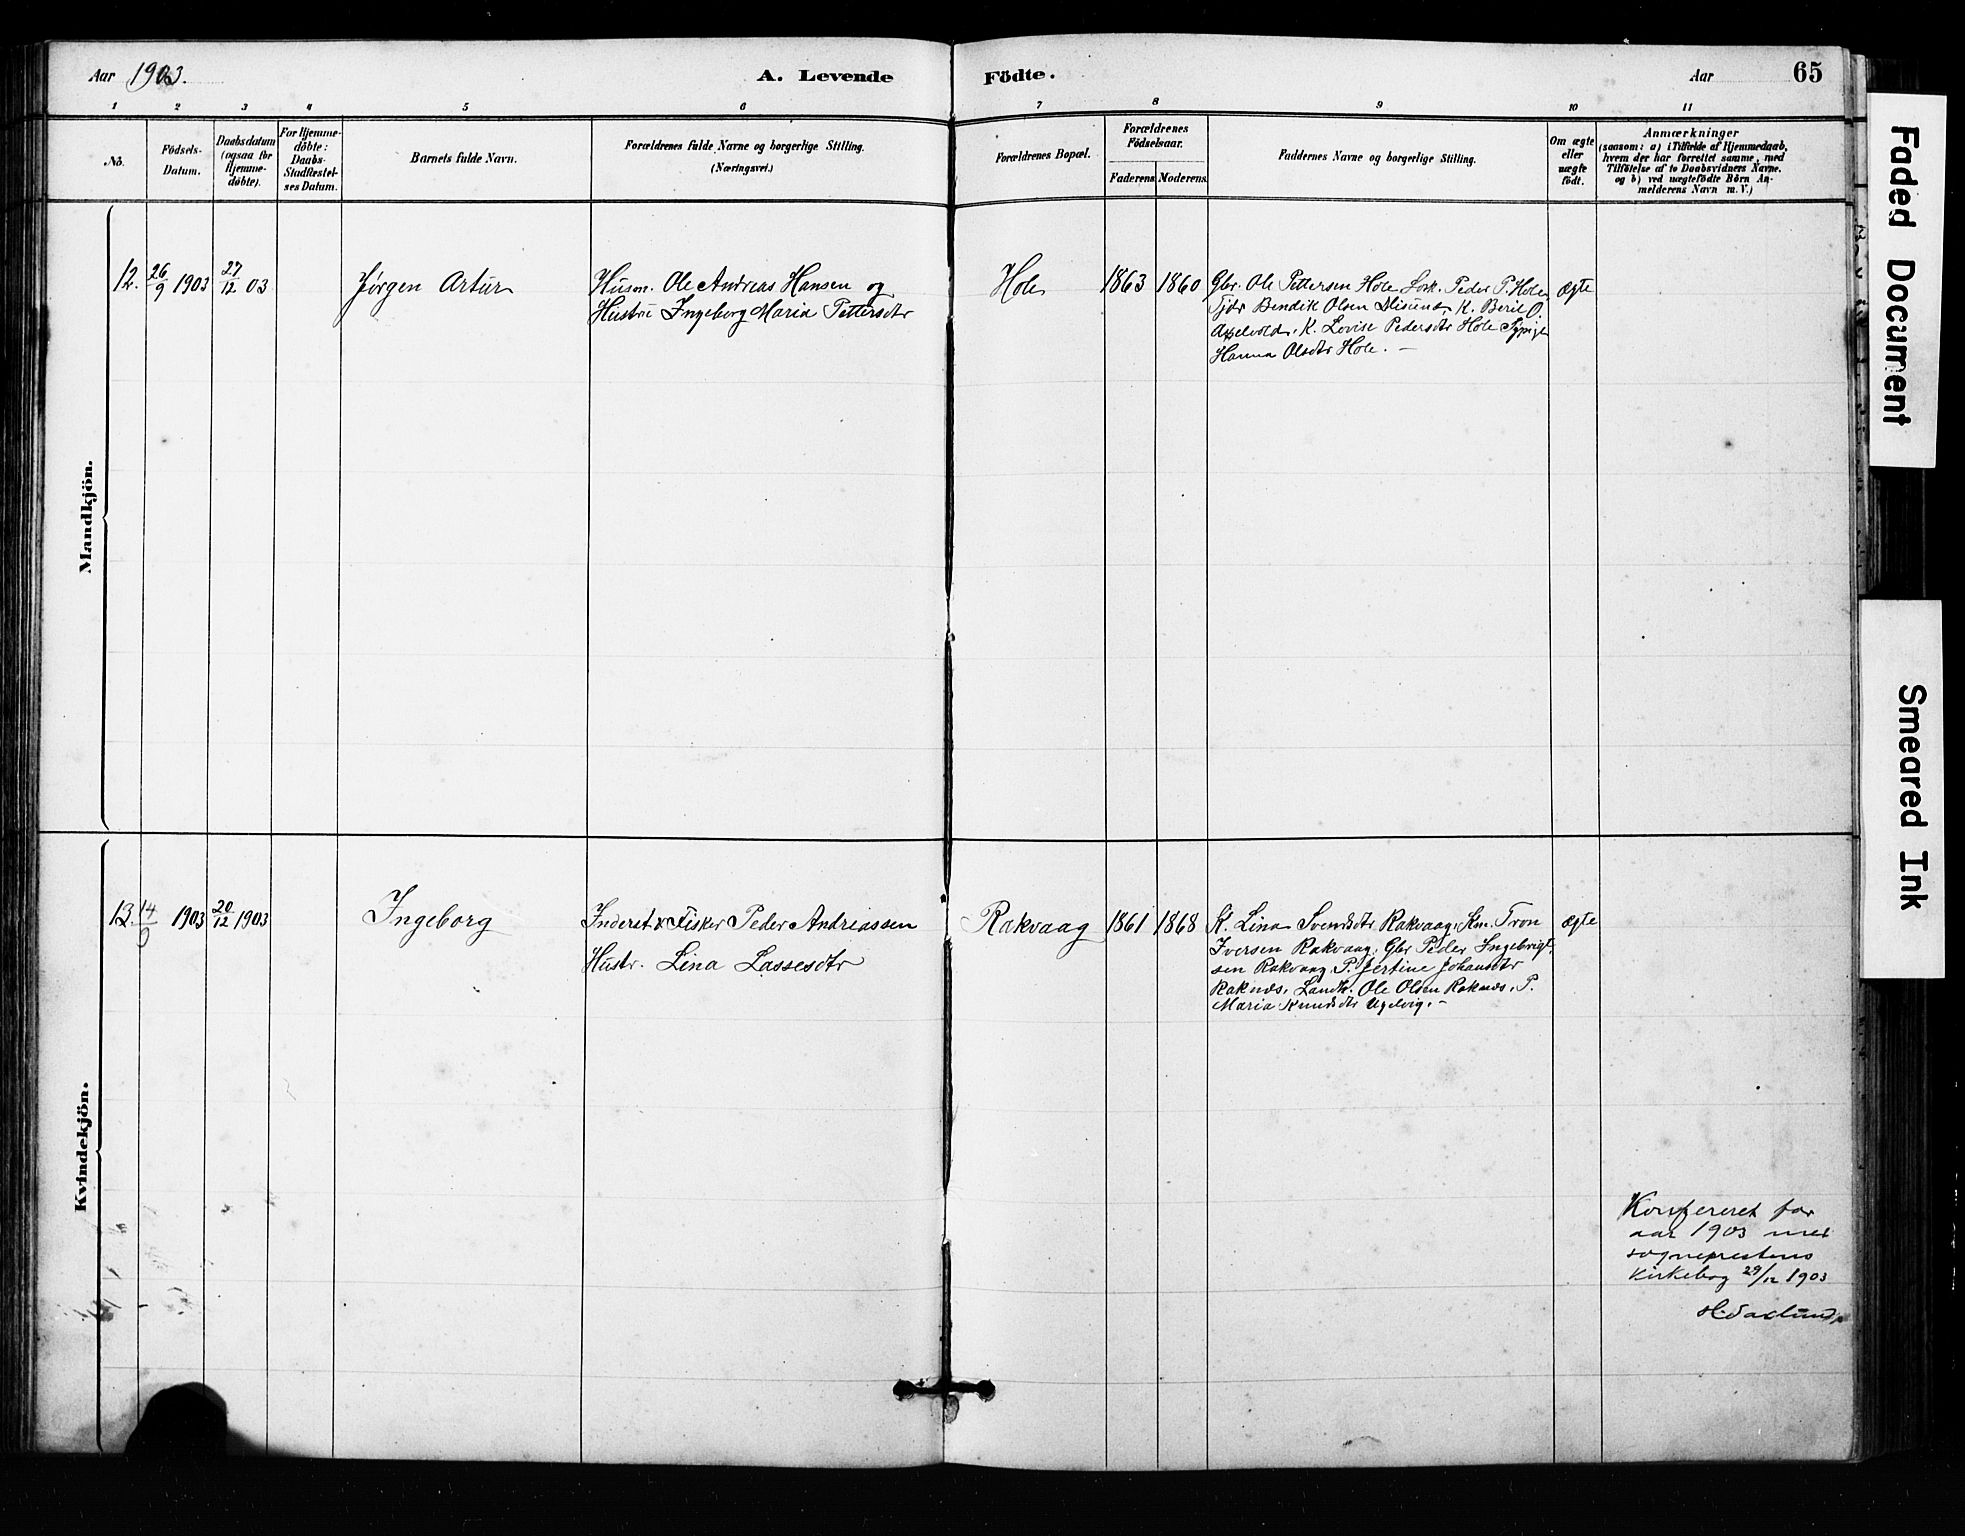 Aar 1903.
A. Levende Födte.
Aar
65
1 2 3 4 5 6 7 8 9 10 11
No.
Födsels-
Datum.
Daabsdatum
(ogsaa for
Hjemme-
döbte).
For Hjemme-
döbte:
Daabs-
Stadfæstel-
ses Datum.
Barnets fulde Navn.
Forældrenes fulde Navne og borgerlige Stilling.
(Næringsvei.)
Forældrenes Bopæl.
Forældrenes
Födselsaar.
Faderens Moderens.
Faddernes Navne og borgerlige Stilling.
Om ægte
eller
uægte
födt.
Anmærkninger
(saasom: a) i Tilfælde af Hjemmedaab,
hvem der har forrettet samme, med
Tilföielse af to Daabsvidners Navne.
og b) ved uægtefödte Börn An-
melderens Navn m. V.)
Mandkjön.
12. 26/9 1903
27/12 03
Jørgen Artur
Husm. Ole Andreas Hansen og
Hustru Ingeborg Maria Pettersdtr
Hole
1863 1860
Gbr. Ole Pettersen Hole Peder P. Hole,
Bendik Olsen Misund, K. Berit O.
K. Lovise Pedersdtr Hole
Hanna Olsdtr Hole. –
ægte
Kvindekjön.
13. 14/9 1903
20/12 1903
Ingeborg
Inderst & Fisker Peder Andreassen
Hustr. Lina Lassesdtr
Rakvaag
1861 1868
K. Lina Svendsdtr Rakvaag, Km. Tron
Iversen Rakvaag, Gbr Peder Ingebrigt-
sen Rakvaag, P. Jertine Johansdtr
Raknæs, Landh. Ole Olsen Raknæs, P.
Maria Knudsdtr Ugelvig. –
ægte
Konfereret for
aar 1903 med
sogneprestens
Kirkebog 29/12 1903
Faded Document
Smeared Ink